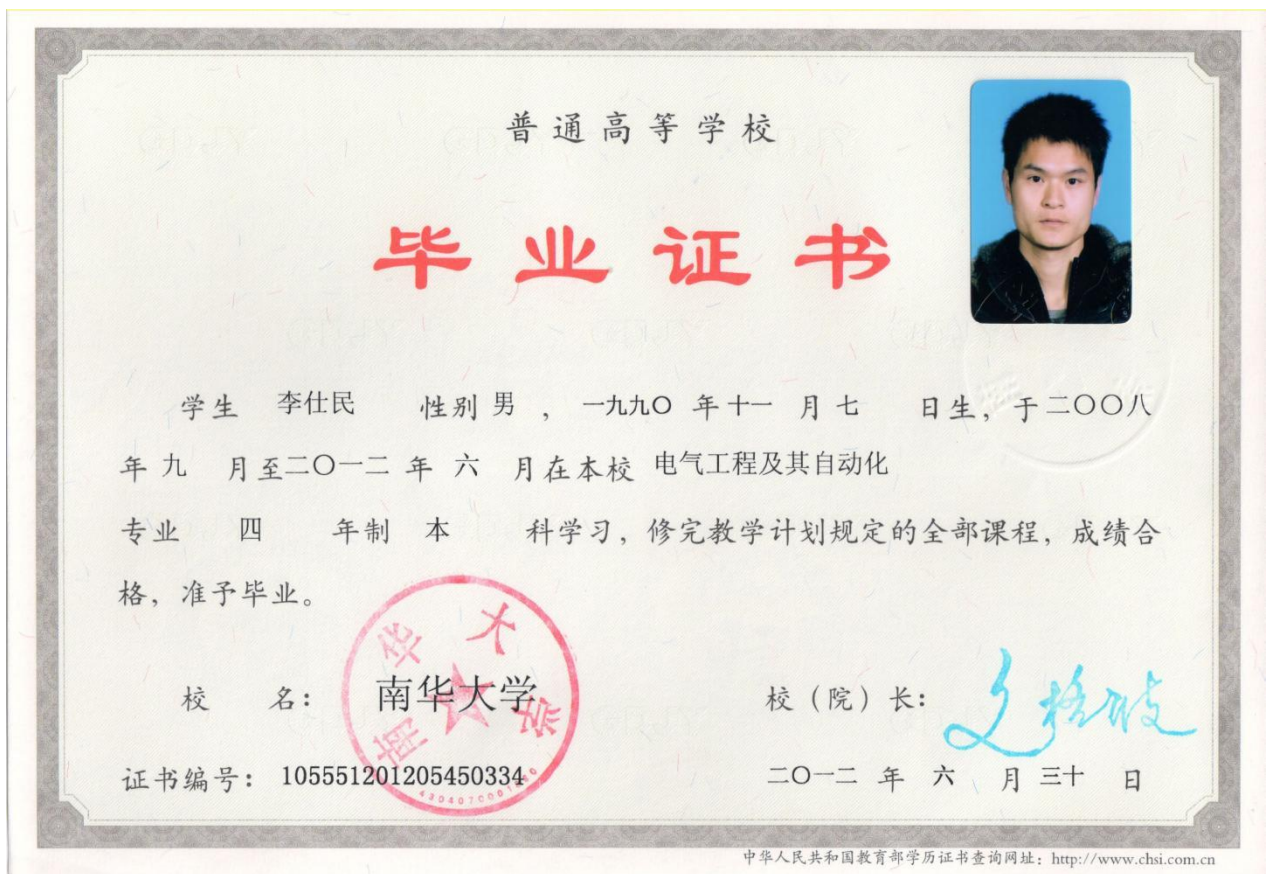 普通高等学校
毕业证书
学生 李仕民 性别 男 ，一九九〇 年 十一 月 七 日生，于 二〇〇八
年 九 月至 二〇一二 年 六 月在本校 电气工程及其自动化
专业 四 年制 本 科学习，修完教学计划规定的全部课程，成绩合
格，准予毕业。
南华大学
校 名： 南华大学 校（院）长： 文格波
证书编号： 105551201205450334 二〇一二 年 六 月 三十 日
中华人民共和国教育部学历证书查询网址：http://www.chsi.com.cn